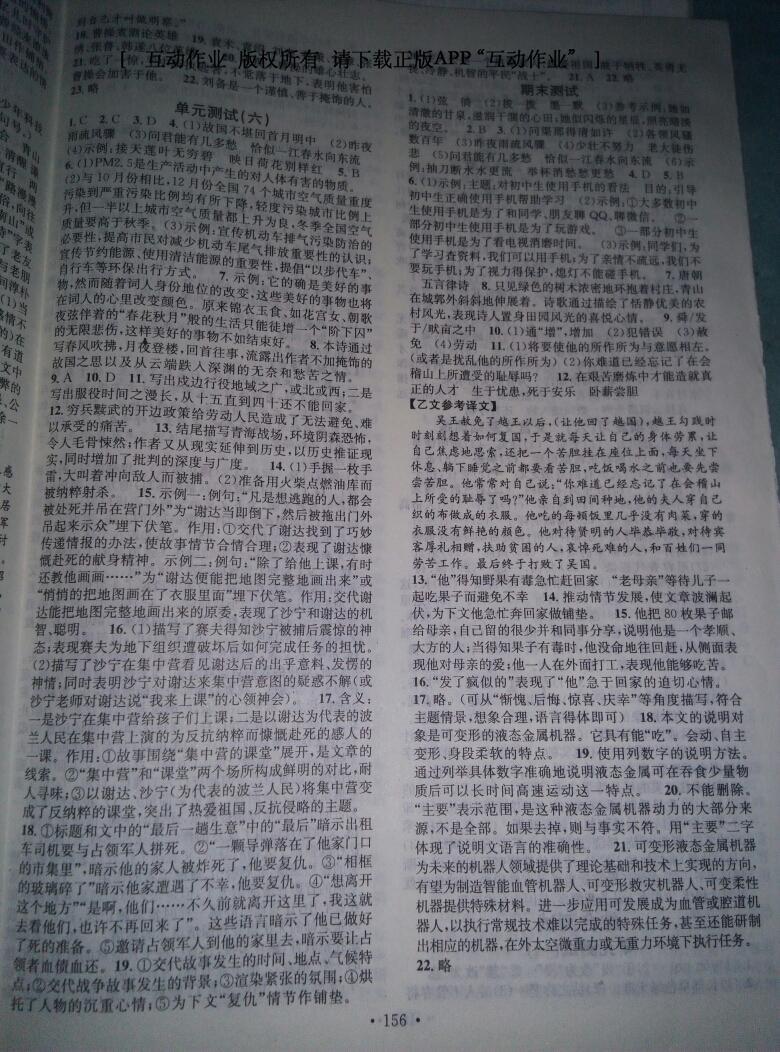 到自己才叫做明察。”
18. 曹操煮酒论英雄 19. 袁术、
绣、张鲁、韩遂八位英雄
[ 互动作业 版权所有 请下载正版APP“互动作业” ]
曹操会加害于他。 22. 刘备是一个谨慎、善于掩饰的人。
23. 略
单元测试(六)
1. C 2. C 3. D 4. (1)故国不堪回首月明中 (2)昨夜
雨疏风骤 (3)问君能有几多愁 恰似一江春水向东流
(4)示例:接天莲叶无穷碧 映日荷花别样红 5. B
6. (1)PM2.5是生产活动中产生的对人体有害的物质。
(2)与10月份相比,12月份全国74个城市空气质量重度
污染到严重污染比例均有所下降,轻度污染城市比例上
升,但一半以上城市空气质量都上升为良,冬季全国空气
质量要高于秋季。(3)示例:宣传机动车排气污染防治的
必要性,提高市民对减少机动车尾气排放重要性的认识;
宣传节约能源、使用清洁能源的重要性,提倡“以步代车”、
自行车等环保出行方式。 7. 示例:它的确是美好的事
物,然而随着词人身份地位的改变,这些美好的事物也将
在词人的心里改变颜色。原来锦衣玉食、如花宫女、朝歌
夜弦伴着的“春花秋月”般的生活只能徒增一个“阶下囚”
的无限悲伤,这样美好的事物不如结束好。 8. 本诗通过
写春风吹拂,月夜登楼,回首往事,流露出作者不加掩饰的
故国之思以及从云端跌入深渊的无奈和愁苦之情。
9. A 10. D 11. 写出戍边行役地域之广,或北或西;二是
写出服役时间之漫长,从十五直到四十还不能回家。
12. 穷兵黩武的开边政策给劳动人民造成了无法避免、难
以承受的痛苦。 13. 结尾描写青海战场,环境阴森恐怖,
令人毛骨悚然;作者又从现实延伸到历史,以历史推证现
实,同时增加了批判的深度与广度。 14. (1)手握一枚手
雷,大叫着冲向敌人而被捕。(2)准备用火柴点燃油库而
被纳粹射杀。 15. 示例一:例句:“凡是想逃跑的人,都会
被处死并吊在营门外”为“谢达当即倒下,然后被拖出门外
吊起来示众”埋下伏笔。作用:①交代了谢达找到了巧妙
传递情报的办法,使故事情节合情合理;②表现了谢达慷
慨赴死的献身精神。示例二:例句:“除了给他上课,有时
还教他画画……”为“谢达便能把地图完整地画出来”或
“悄悄的把地图画在了衣服里面”埋下伏笔。作用:交代谢
达能把地图完整地画出来的原委,表现了沙宁和谢达的机
智、聪明。 16. (1)描写了赛夫得知沙宁被捕后震惊的神
态;表现赛夫为地下组织遭破坏后如何完成任务的担忧。
(2)描写了沙宁在集中营看见谢达后的出乎意料、发愣的
神情;同时表明沙宁对谢达来集中营意图的疑惑不解(或
沙宁老师对谢达说“我来上课”的心领神会)。 17. 含义:
一是沙宁在集中营给孩子们上课;二是以谢达为代表的波
兰人民在集中营上演的为反抗纳粹而慷慨赴死的感人的
一课。作用:①故事围绕“集中营的课堂”展开,是文章的
线索。②“集中营”和“课堂”两个场所构成鲜明的对比,耐
人寻味;③以谢达、沙宁(为代表的波兰人民)将集中营变
成了反纳粹的课堂,突出了热爱祖国、反抗侵略的主题。
18. ①标题和文中的“最后一趟生意”中的“最后”暗示出租
车司机要与占领军人拼死。②“一颗导弹落在了他家门口
的市集里”,暗示他的家人被炸死了,他要复仇。③“相框
的玻璃碎了”暗示他家遭遇了不幸,他要复仇。④“想离开
这个地方”“是啊,他们……不久前就离开这里了,我这就
去看他们,也许不再回来了”。这些语言暗示了他已做好
了死的准备。⑤邀请占领军人到他的家里去,暗示要让占
领者血债血还。 19. ①交代故事发生的时间、地点、气候特
点;②交代战争故事发生的背景;③渲染紧张的氛围;④烘
托了人物的沉重心情;⑤为下文“复仇”情节作铺垫。
畏、冷静、机智的平民“战士”。 21. A 22. 略
期末测试
1. (1)弦 倘 (2)拨 拨 墨 一默 (3)参考示例:她如
清澈的甘泉,滋润干涸的心田;她似闪烁的星辰,照亮黯淡
的夜空。 2. B 3. (1)问渠那得清如许 (2)各领风骚
数百年 (3)昨夜雨疏风骤 (4)少壮不努力 老大徒伤
悲 (5)问君能有几多愁 恰似一江春水向东流 (6)示
例:抽刀断水水更流 举杯消愁愁更愁 4. D 5. B
6. (1)示例:主题:对初中生使用手机的看法 目的:引导
初中生正确使用手机帮助学习 (2)示例:①大多数初中
生使用手机是为了和同学、朋友聊QQ,聊微信。 ②一
部分初中生使用手机是为了玩游戏。 ③一部分初中生
使用手机是为了看电视消磨时间。 (3)示例:同学们,为
了学习查资料,我们可以用手机;为了亲情不疏远,我们不
要玩手机;为了视力得保护,熄灯不能碰手机。 7. 唐朝
五言律诗 8. 只见绿色的树木浓密地环抱着村庄,青山
在城郭外斜斜地伸展着。诗歌通过描绘了恬静优美的农
村风光,表现诗人置身田园风光的喜悦心情。 9. 舜/发
于/畎亩之中 10. (1)通“增”,增加 (2)犯错误 (3)赦
免 (4)劳动 11. (1)将要使他的所作所为与意愿相左。
(或者是扰乱他的所作所为)(2)你难道已经忘记了在会
稽山上所遭受的耻辱吗? 12. 在艰苦磨炼中才能造就真
正的人才 生于忧患,死于安乐 卧薪尝胆
【乙文参考译文】
吴王赦免了越王以后,(让他回了越国),越王勾践时
时刻刻想着如何复国,于是就每天让自己的身体劳累,让
自己焦虑地思索,还把一个苦胆挂在座位上面,每天坐下
休息、躺下睡觉之前都要看苦胆,吃饭喝水之前也要先尝
尝苦胆。他常常对自己说:“你难道已经忘记了在会稽山
上所受的耻辱了吗?”他亲自到田间种地,他的夫人穿自己
织的布做成的衣服。他吃的每顿饭里几乎没有肉菜,穿的
衣服没有鲜艳的颜色。他对待贤明的人毕恭毕敬,对待宾
客厚礼相赠,扶助贫困的人,哀悼死难的人,和百姓们一同
劳苦工作。最后终于打败了吴国。
13. “他”得知野果有毒急忙赶回家 “老母亲”等待儿子一
起吃果子而避免不幸 14. 推动情节发展,使文章波澜起
伏,为下文他急忙奔回家做铺垫。 15. 他把80枚果子邮
给母亲,自己留的很少并和同事分享,说明他是一个孝顺、
大方的人;当得知果子有毒时,他没命地往回赶,从侧面表
现他对母亲的爱;他一人在外面打工,表现他能够吃苦。
16. “发了疯似的”表现了“他”急于回家的迫切心情。
17. 略。(可从“惭愧、后悔、惊喜、庆幸”等角度描写,符合
主题情景,想象合理,语言得体即可) 18. 本文的说明对
象是可变形的液态金属机器。它具有能“吃”。会动、自主
变形、身段柔软的特点。 19. 使用列数字的说明方法。
通过列举具体数字准确地说明液态金属可在吞食少量物
质后可以长时间高速运动这一特点。 20. 不能删除。
“主要”表示范围,是这种液态金属机器动力的大部分来
源,不是全部。如果去掉,则与事实不符。用“主要”二字
体现了说明文语言的准确性。 21. 可变形液态金属机器
为未来的机器人领域提供了理论基础和技术上实现的方向,
有望为制造智能血管机器人、可变形救灾机器人、可变柔性
机器提供特殊材料。进一步应用可发展成为血管或腔道机器
人,以执行常规技术难以完成的特殊任务,甚至还能研制
出相应的机器,在外太空微重力或无重力环境下执行任务。
22. 略
· 156 ·